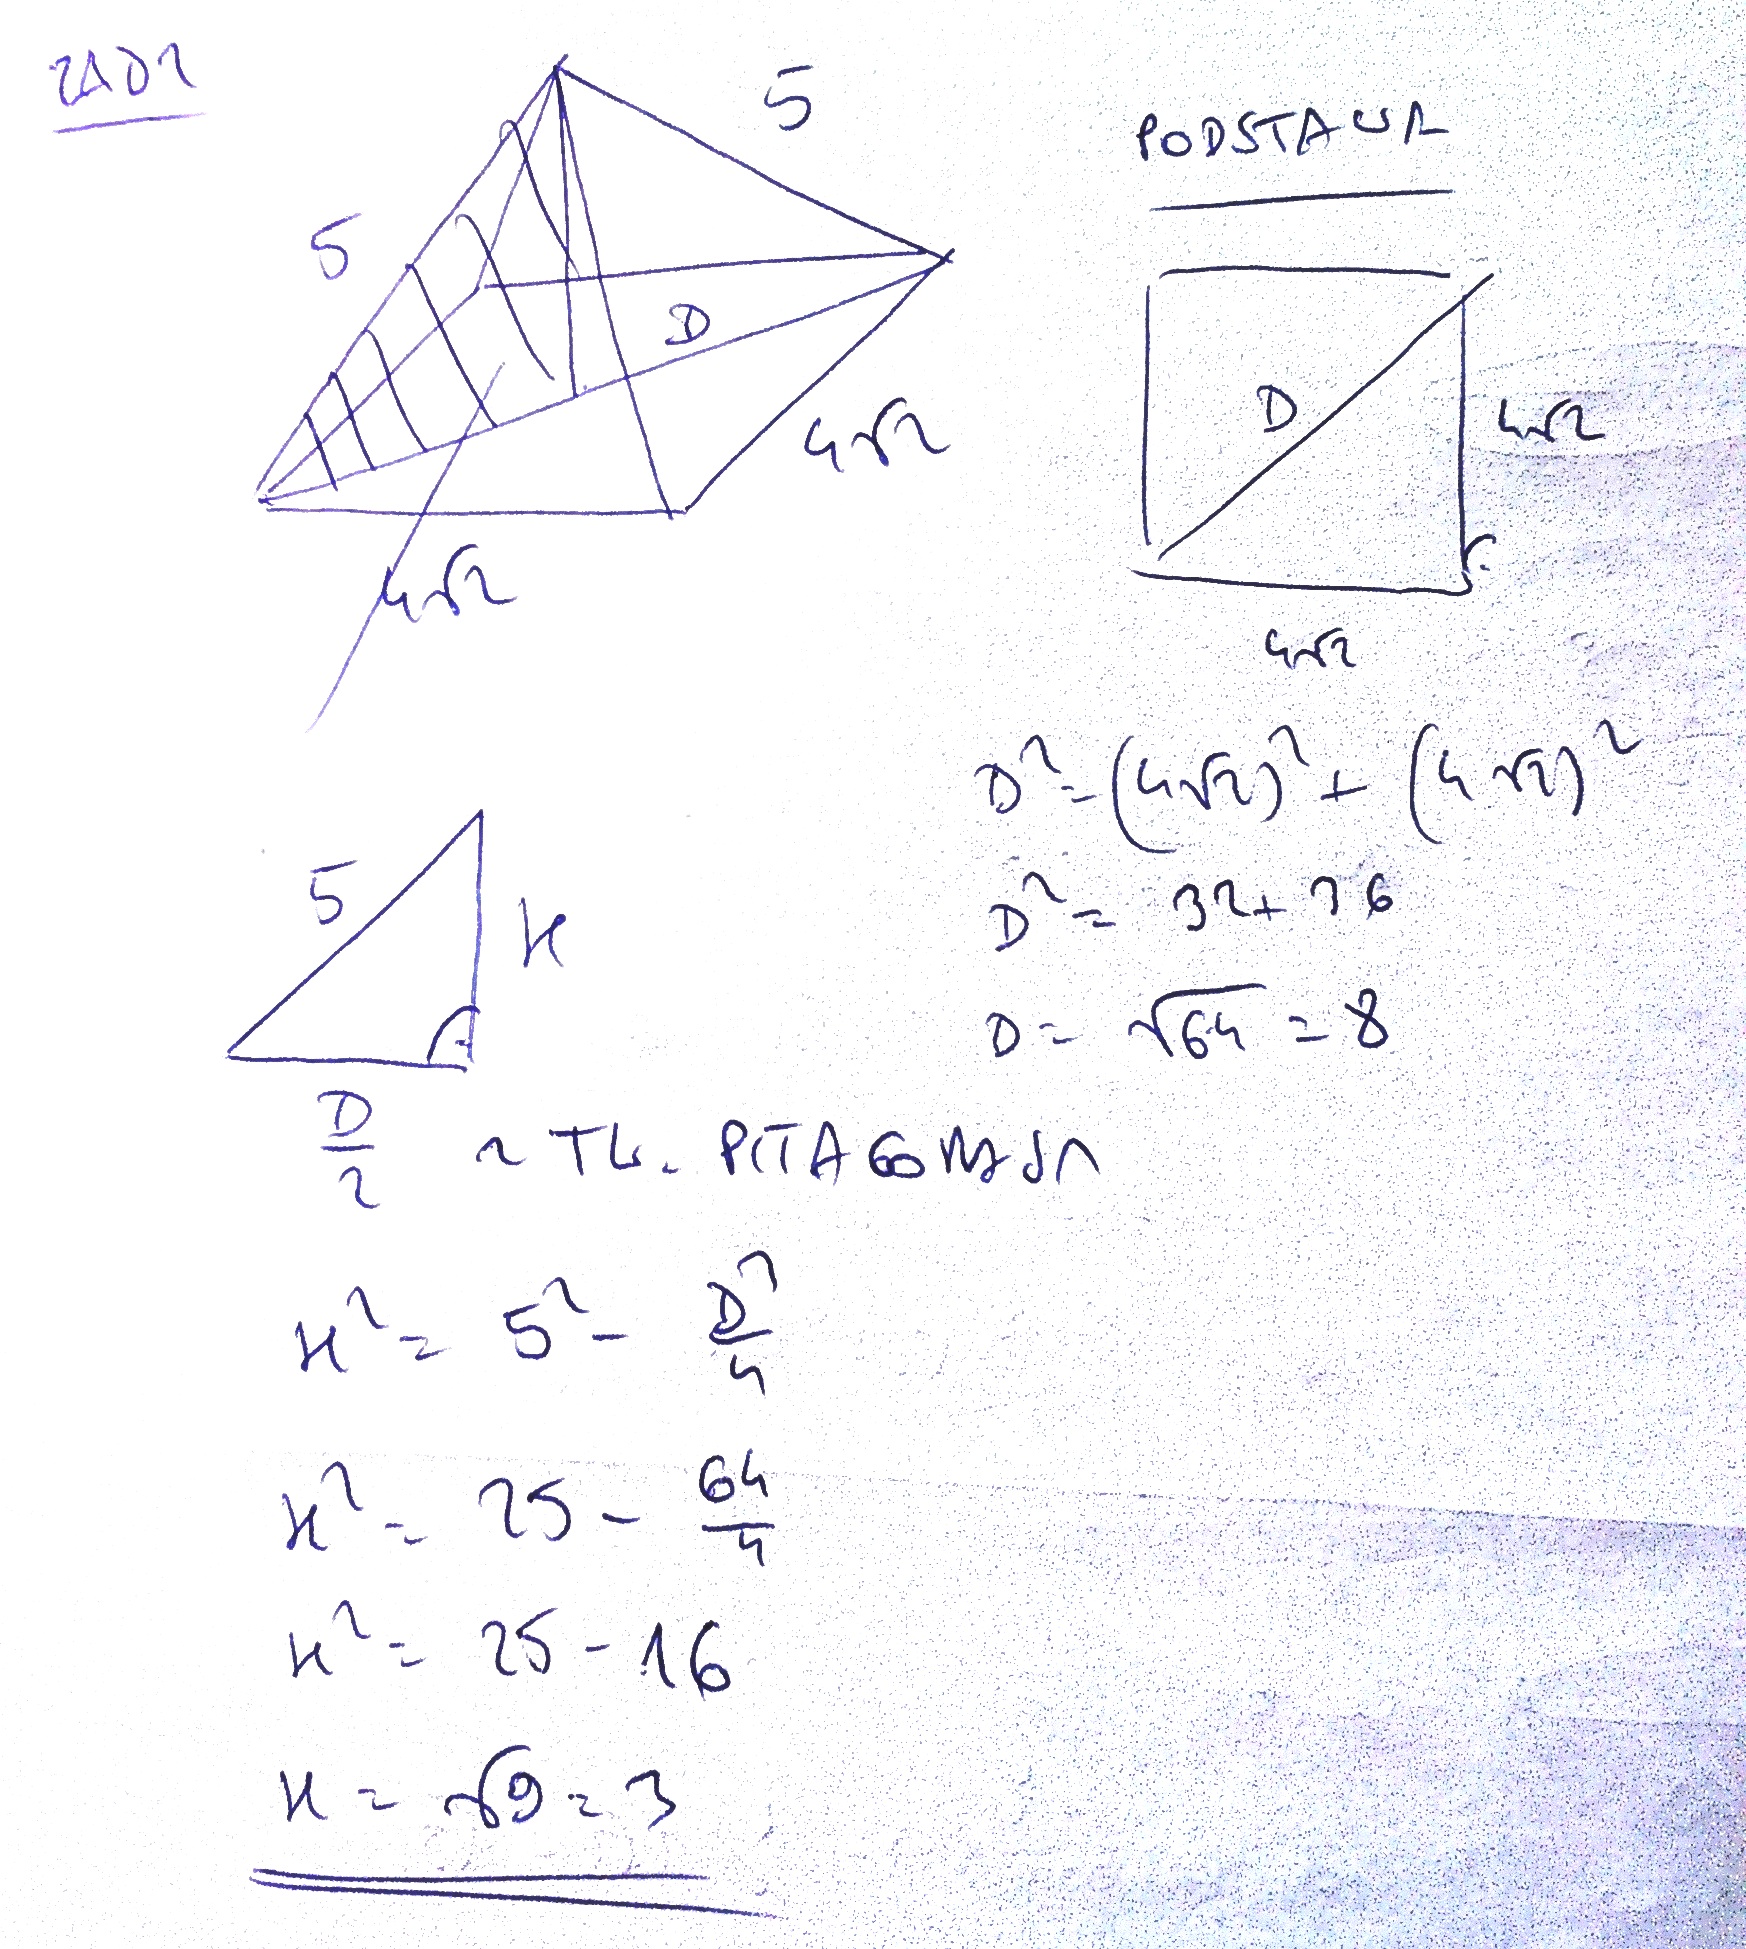 ZAD2
5
5
D
4√2
4√2
PODSTAWA
D
4√2
4√2
D² = (4√2)² + (4√2)²
D² = 32 + 36
D = √64 = 8
5
H
D/2
z TW. PITAGORASA
H² = 5² - D²/4
H² = 25 - 64/4
H² = 25 - 16
H = √9 = 3